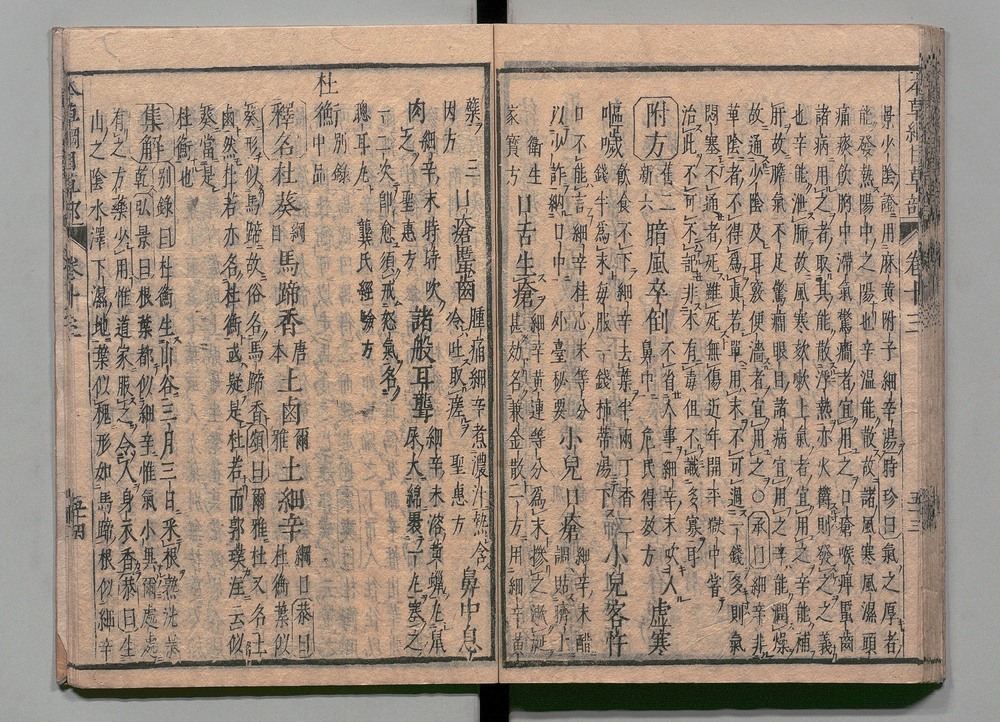 景少陰證用麻黄附子細辛湯時珍曰氣之厚者
能發熱陽中之陽也辛溫能散故諸風寒風濕頭
痛痰飲胸中滯氣驚癇者宜用之口瘡喉痺䘌齒
諸病用之者取其能散浮熱亦火鬱則發之之義
也辛能泄肺故風寒欬嗽上氣者宜用之辛能補
肝故膽氣不足驚癇眼目諸病宜用之辛能潤燥
故通少陰及耳竅便濇者宜用之○承曰細辛非
華陰者不得爲真若單用末不可過一錢多則氣
悶塞不通者死雖死無傷近年開平獄中嘗
治此不可不記非本有毒但不識多寡耳
附方 舊二新六 暗風卒倒 不省人事細辛末吹入鼻中 危氏得效方 虛寒
嘔噦 飲食不下細辛去葉半兩丁香二錢半爲末每服一錢柹蒂湯下 小兒客忤
口不能言細辛桂心末等分以少許納口中 外臺秘要 小兒口瘡 細辛末醋調貼臍上
衛生家寳方 口舌生瘡 細辛黄連等分爲末摻之漱涎甚效名兼金散一方用細辛黄
蘗 三因方 口瘡䘌齒 腫痛細辛煮濃汁熱含冷吐取瘥 聖惠方 鼻中息
肉 細辛末時時吹之 聖惠方 諸般耳聾 細辛末溶黄蠟丸鼠屎大綿裹一丸塞之
一二次卽愈須戒怒氣名聰耳丸 龔氏經驗方
杜衡 別録中品
釋名 杜葵 綱目 馬蹄香 唐本 土鹵 爾雅 土細辛 綱目 恭曰杜衡葉似
葵形似馬蹄故俗名馬蹄香頌曰爾雅杜又名土
鹵然杜若亦名杜衡或疑是杜若而郭璞涯云似
葵當是
杜衡也
集解 別録曰杜衡生山谷三月三日采根熟洗暴
乾弘景曰根葉都似細辛惟氣小異爾處處
有之方藥少用惟道家服之令人身衣香恭曰生
山之陰水澤下濕地葉似槐形如馬蹄根似細辛
本草綱目草部 卷十三 五三
本草綱目草部 卷十三 五四